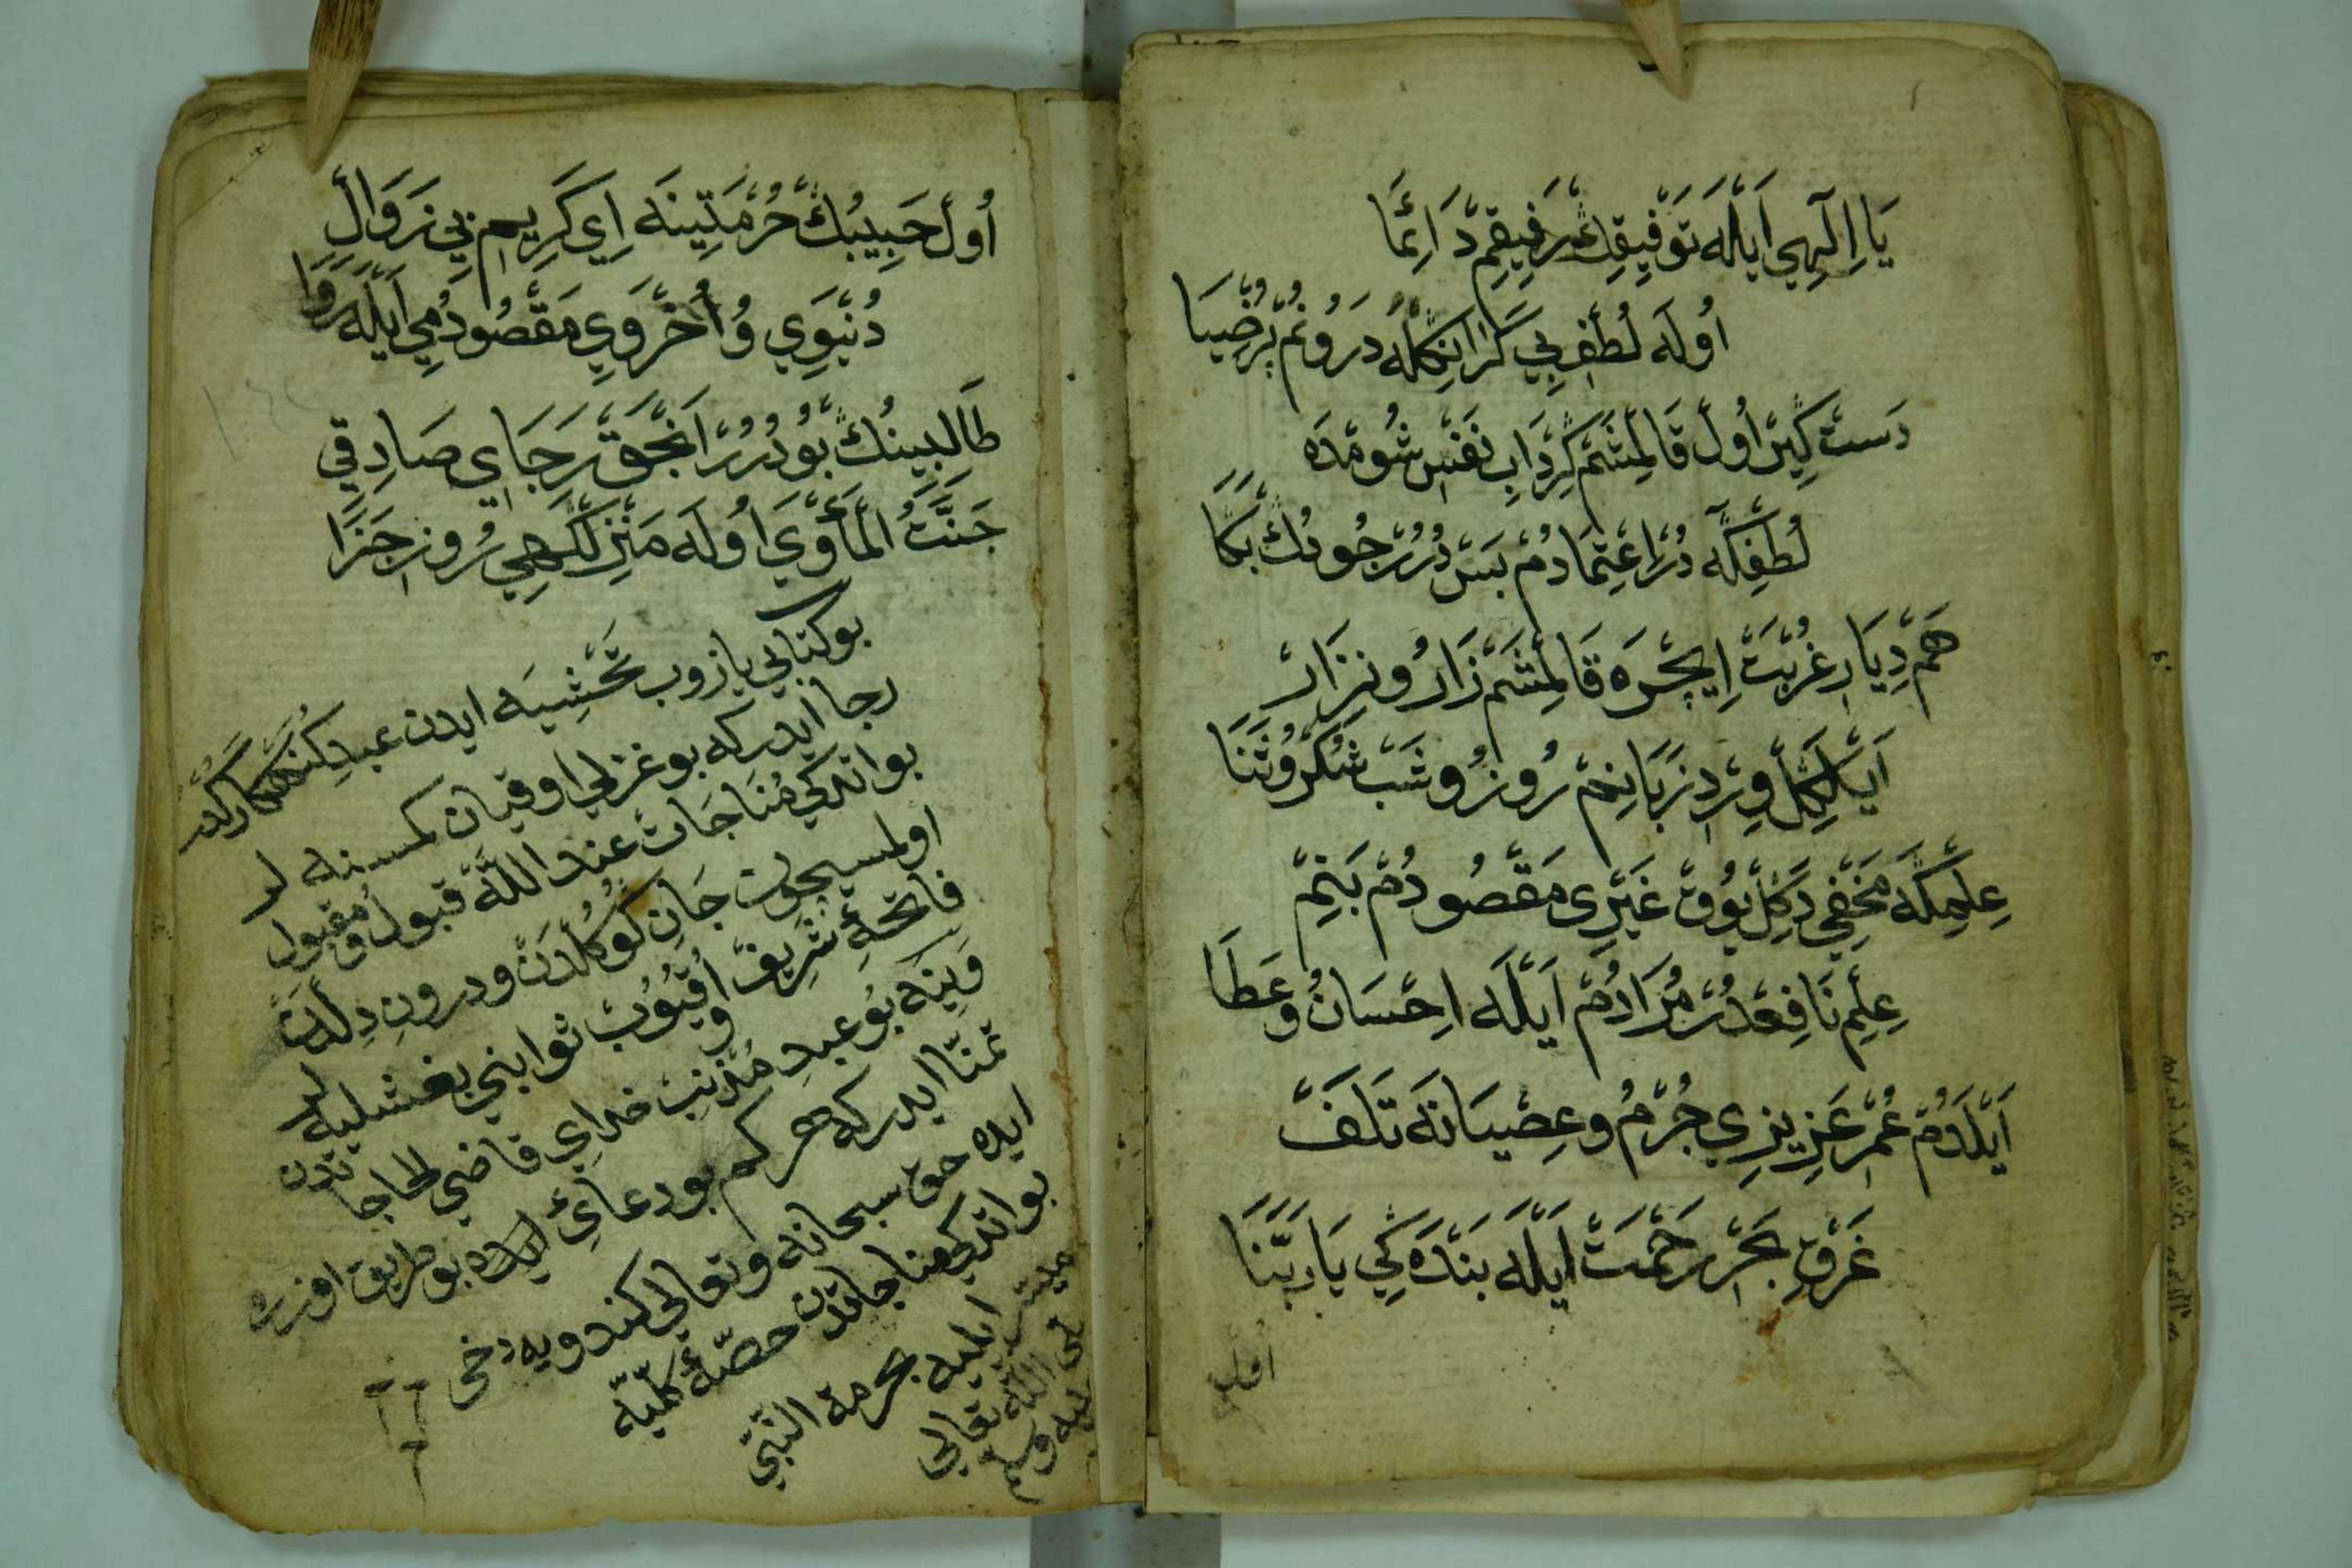 يَا اِلٰهِي اَيْلَه تَوْفِيقِكْ رَفِيقِمْ دَائِمَا
اُولَه لُطْفِ بِي كَرَانِكْلَه دَرُونُمْ پُرْضِيَا
دَسْتْ كِيرْ اُولْ قَالْمِشَمْ كِرْدَابِ نَفْسِ شُومْدَه
لُطْفِكَه دُرْ اِعْتِمَادُمْ بَسْ دُرُرْ جُودُكْ بَكَا
هَمْ دِيَارِ غُرْبَتْ اِيچْرَه قَالْمِشَمْ زَارُ و نِزَارْ
اَيْلَكِلْ وِرْدِ زَبَانِمْ رُوزُ و شَبْ شُكْرُ و ثَنَا
عِلْمِكَه مَخْفِي دَكِلْ يُوقْ غَيْرِي مَقْصُودُمْ بَنِمْ
عِلْمِ نَافِعْدُرْ مُرَادُمْ اَيْلَه اِحْسَانُ و عَطَا
اَيْلَدُمْ عُمْرِ عَزِيزِي جُرْمُ و عِصْيَانَه تَلَفْ
غَرْقِ بَحْرِ رَحْمَتْ اَيْلَه بَنْدَه كِي يَا رَبَّنَا
اُول
اُولْ حَبِيبُكْ حُرْمَتِينَه اِي كَرِيمِ بِي زَوَالْ
دُنْيَوِي وُ اُخْرَوِي مَقْصُودُمِي اَيْلَه رَوَا
طَالِبِينُكْ بُودُرُرْ اَنْجَقْ رَجَاي صَادِقِي
جَنَّتُ الْمَأْوَي اُولَه مَنْزِلْكَهِي رُوزِ جَزَا
بو كتابي يازوب تَحْشِيَه ايدن عبدِ كُنَهكار كدر
رجا ايدر كه بو غزلي اوقيان كمسنه لر
بو اندكي مُنَاجَات عند اللّٰه قبول و مقبول
اولمسيچون جَانِ كوكُلدَنْ و درونِ دِلدَنْ
فاتحهٔ شَرِيفْ اُوقُيُوبْ ثوابني بغشليه لر
وَيَنَه بُو عبدِ مُذنِبْ خداي قاضي الحاجاتدن
تمنّا ايدر كه هر كم بو دعايي بو طريق اوزره
ايده حق سبحانه و تعالى كندويه دخى
بو اندكي مناجاتدن حصّهٔ كلّيّه
ميسر ايليه بحرمة النّبيّ
اللّه تعالى
عليه وسلم